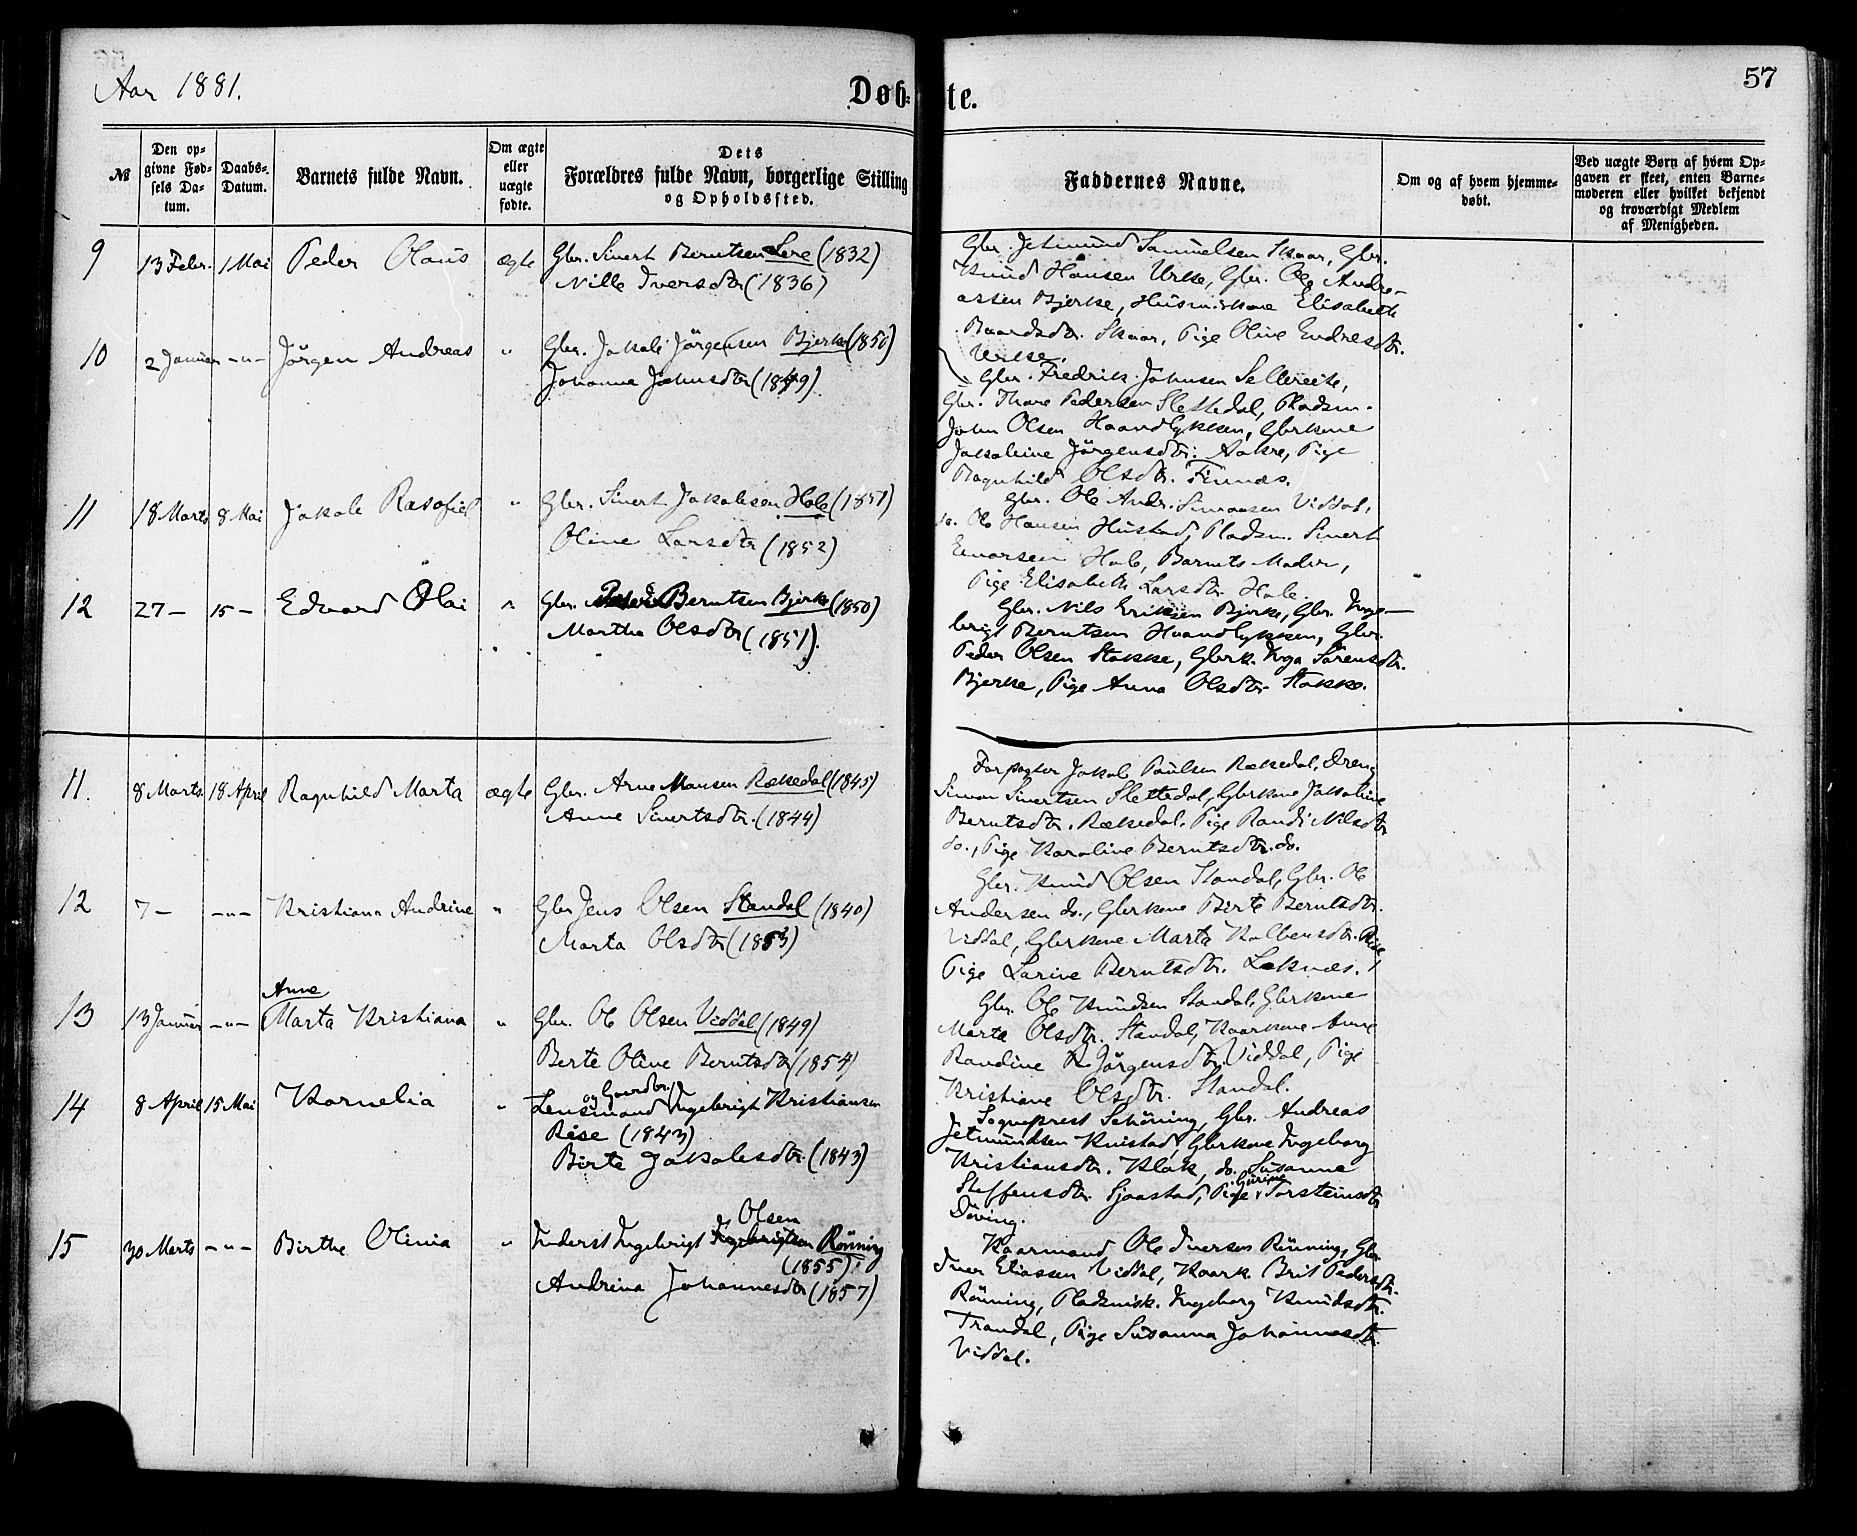 Aar 1881.
Døb-te.
57
№
Den op-
givne Fød-
sels Da-
tum.
Daabs-
Datum.
Barnets fulde Navn.
Om ægte
eller
uægte
fødte.
Dets
Forældres fulde Navn, borgerlige Stilling
og Opholdssted.
Faddernes Navne.
Om og af hvem hjemme-
døbt.
Ved uægte Børn af hvem Op-
gaven er skeet, enten Barne-
moderen eller hvilket bekjendt
og troværdigt Medlem
af Menigheden.
9 13 Febr. 1 Mai Peder Olaus ægte Gbr. Sivert Berntsen (1832)
Nille Iversdtr (1836)
Gbr. Jetmund Samuelsen Skaar, Gbr.
Knud Hansen Urke, Gbr. Ole Andre-
assen Bjerke, Husm.kone Elisabeth
Baardsdtr. Skaar, Pige Oline Endresdtr.
Urke.
10 2 Januar -"- Jörgen Andreas " Gbr. Jakob Jörgensen Bjerke (1850)
Johanne Johnsdtr (1849).
Gbr. Fredrik Johnsen Sellereite,
Gbr. Thore Pedersen Slettedal, Pladsm.
John Olsen Haandlykken, Gbrkone
Jakobine Jörgensdtr. Aakre, Pige
Ragnhild Olsdtr. Finnæs.
11 18 Marts 8 Mai Jakob Rasofiel " Gbr. Sivert Jakobsen Hole (1851)
Oline Larsdtr (1852)
Gbr. Ole Andr. Simonsen Viddal,
do. Ole Hansen Hustad, Pladsm. Sivert
Hole, Barnets Moder,
Pige Elisabeth Larsdtr. Hole.
12 27 - 15 - Edvard Olai " Gbr. Peder Berntsen Bjerke (1850)
Martha Olsdtr (1851).
Gbr. Nils Eriksen Bjerke, Gbr. Inge-
brigt Berntsen Haandlykken, Gbr.
Peder Olsen Stokke, Gbrk. Inga Sörensdtr.
Bjerke, Pige Anna Olsdtr Stokke.
11. 8 Marts 18 April Ragnhild Marta ægte Gbr. Arne Monsen Rækedal (1845)
Anne Sivertsdtr. (1844)
Forpagter Jakob Paulsen Rækedal, Dreng
Simon Sivertsen Slettedal, Gbrkone Jakobine
Berntsdtr. Rækedal. Pige Randi Nilsdtr
do., Pige Karoline Berntsdtr. do.
12 7 - -"- Kristiana Andrine " Gbr Jens Olsen Standal (1840)
Marta Olsdtr (1853)
Gbr. Knud Olsen Standal, Gbr. Ole
Andersen do., Gbrkone Birte Berntsdtr.
Viddal, Gbrkone Marta Kolbensdtr. Rise
Pige Larine Berntsdtr. Leknæs.
Anne
13 13 Januar -"- Marta Kristiana " Gbr. Ole Olsen Viddal (1849)
Berte Oline Berntsdtr (1854)
Gbr. Ole Knudsen Standal, Gbrkone
Marta Olsdtr. Standal, Kaarkone Anne
Randine R. Jörgensdtr Viddal, Pige
Kristiane Olsdtr. Standal.
og Gaardbr.
14 8 April 15 Mai Kornelia " Lensmand Ingebrigt Kristiansen
Rise (1843)
Birte Jakobsdtr. (1843)
Sogneprest Schöning, Gbr. Andreas
Jetmundsen Knistad, Gbrkone Ingeborg
Kristiansdtr. Klok, do. Susanne
Steffensdtr. Sjaastad, Pige Gurine Torsteinsdtr
Döving.
Olsen
15 30 Marts -"- Birthe Olivia " Inderst Ingebrigt Ingebrigtsen Rönning
(1855)
Andrina Johannesdtr (1857)
Kaarmand Ole Iversen Rönning, Gbr
Iver Eliassen Viddal, Kaark. Brit Pedersdtr.
Rönning, Pladsmsk. Ingeborg Knudsdtr.
Trandal, Pige Susanna Johannesdtr.
Viddal.